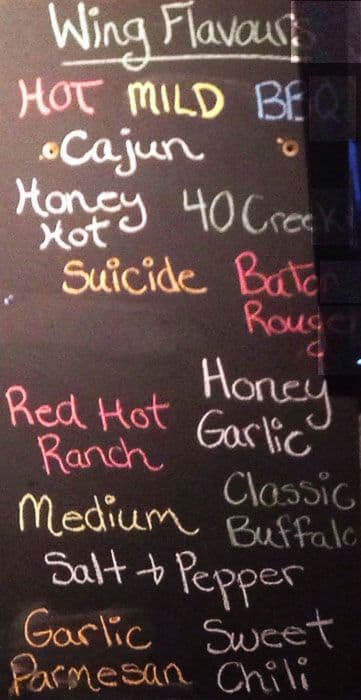 Wing Flavours
HOT MILD BBQ
Cajun
Honey Hot 40 Creek
Suicide Baton Rouge
Red Hot Ranch Honey Garlic
Medium Classic Buffalo
Salt + Pepper
Garlic Parmesan Sweet Chili